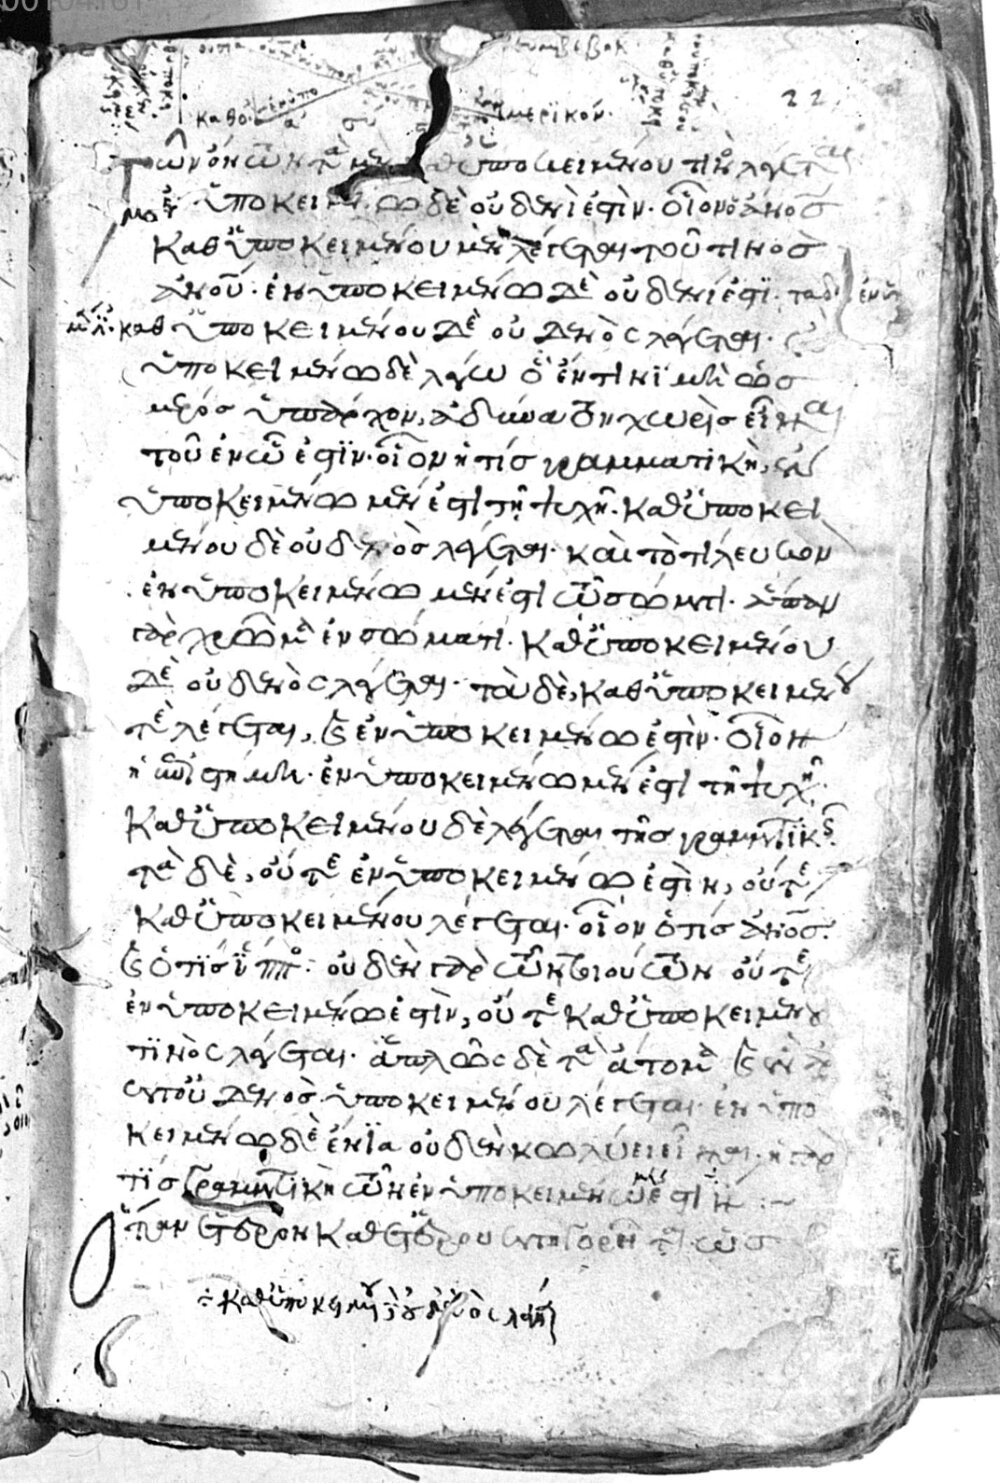 22
καθό
μερικόν·
τῶν ὄντων τὰ μὲν καθ ὑποκειμένου τινὸς λέγεται
ὑποκειμένω δὲ οὐδενί ἐστιν· οἷον ὁ ἄνος
καθ ὑποκειμένου μὲν λέγεται τοῦ τινὸσ
ἀνου· ἐν ὑποκειμένω δὲ οὐδενί ἐστι· τὰ δὲ ἐν
καθ ὑποκειμένου δὲ οὐδενὸς λέγεται·
ὑποκειμένω δὲ λέγω ὃ ἔν τινι μὴ ὡσ
μέρος ὑπάρχον, ἀδύνατον χωρὶς εἶναι
τοῦ ἐν ὧ ἐστϊν· οἷον ἡ τίσ γραμματικὴ, ἐν
ὑποκειμένω μέν ἐστι τῆ ψυχῆ· καθ ὑποκει
μένου δὲ οὐδενὸσ λέγεται· καὶ τὸ τὶ λευκὸν
ἐν ὑποκειμένω μέν ἐστι τῶ σώματι· ἅπαν
γὰρ χρῶμα ἐν σώματι· καθ ὑποκειμένου
δὲ οὐδενὸς λέγεται· τὰ δὲ, καθ ὑποκειμένου
τὲ λέγεται, καὶ ἐν ὑποκειμένω ἐστὶν· οἷον
ἡ ἐπιστήμη· ἐν ὑποκειμένω μέν ἐστι τῆ ψυχῆ·
καθ ὑποκειμένου δὲ λέγεται τῆσ γραμματικῆς·
τὰ δὲ, οὔτε ἐν ὑποκειμένω ἐστὶν, οὔτε
καθ ὑποκειμένου λέγεται· οἷον ὁ τὶσ ἄνος·
καὶ ὁ τὶσ ἵππος· οὐδὲν γὰρ τῶν τοιούτων οὔτε
ἐν ὑποκειμένω ἐστὶν, οὔτε καθ ὑποκειμένου
τϊνὸς λέγεται· ἁπλῶς δὲ τὰ ἄτομα καὶ ἓν ἀ
οὐδενὸσ ὑποκειμένου λέγεται· ἐν ὑπο
κειμένω δὲ ἔνϊα οὐδὲν κωλύει εἶναι· ἡ γάρ
τίσ γραμματικὴ τῶν ἐν ὑποκειμένω ἐστίν :~
ὅταν ἕτερον καθ ἑτέρου κατηγορῆται ὡσ
÷ καθ ὑποκειμένου δὲ οὐδενὸς λέγεται